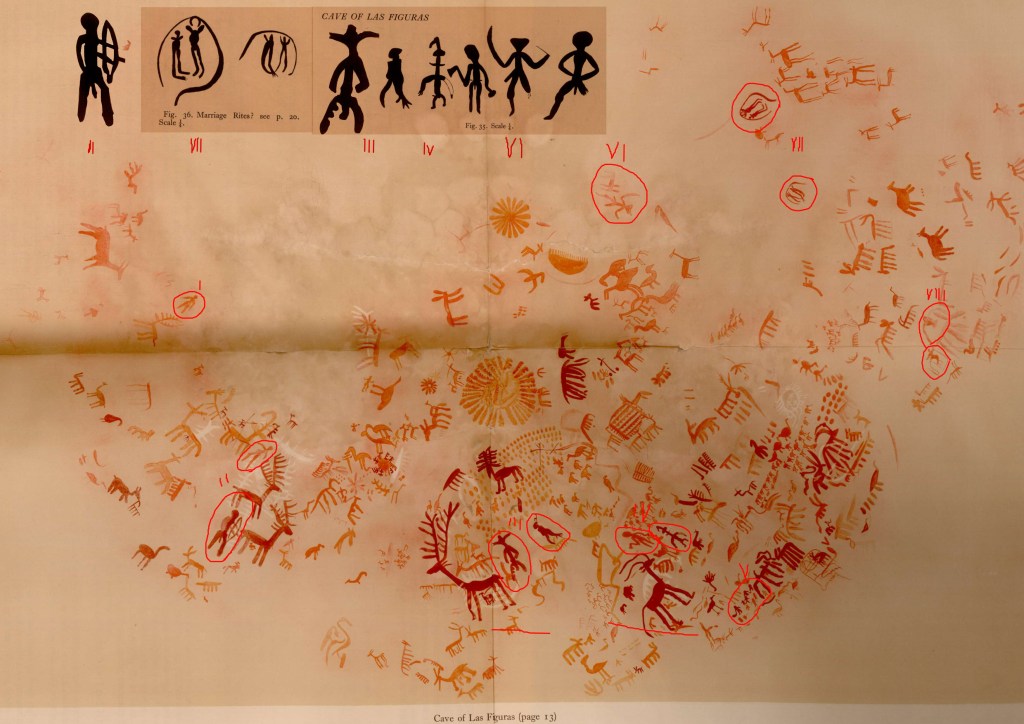 CAVE OF LAS FIGURAS
Fig. 36. Marriage Rites? see p. 20.
Scale ¼.
Fig. 33. Scale ¼.
II
VII
III
IV
VI
VI
VII
I
VIII
II
III
V
Cave of Las Figuras (page 13)